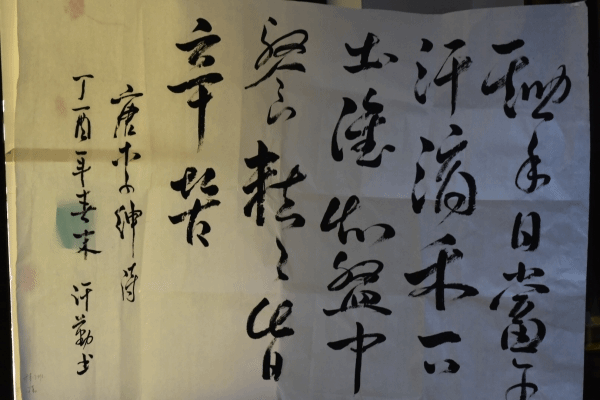 鋤禾日當午
汗滴禾下
土誰知盤中
餐粒々皆
辛苦
唐李紳詩
丁酉年春末 勤书